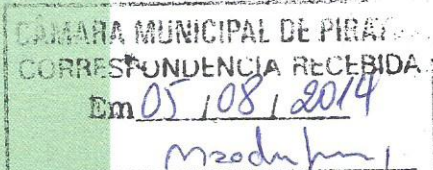 CÂMARA MUNICIPAL DE
CORRESPONDENCIA RECEBIDA
Em 05 / 08 / 2014